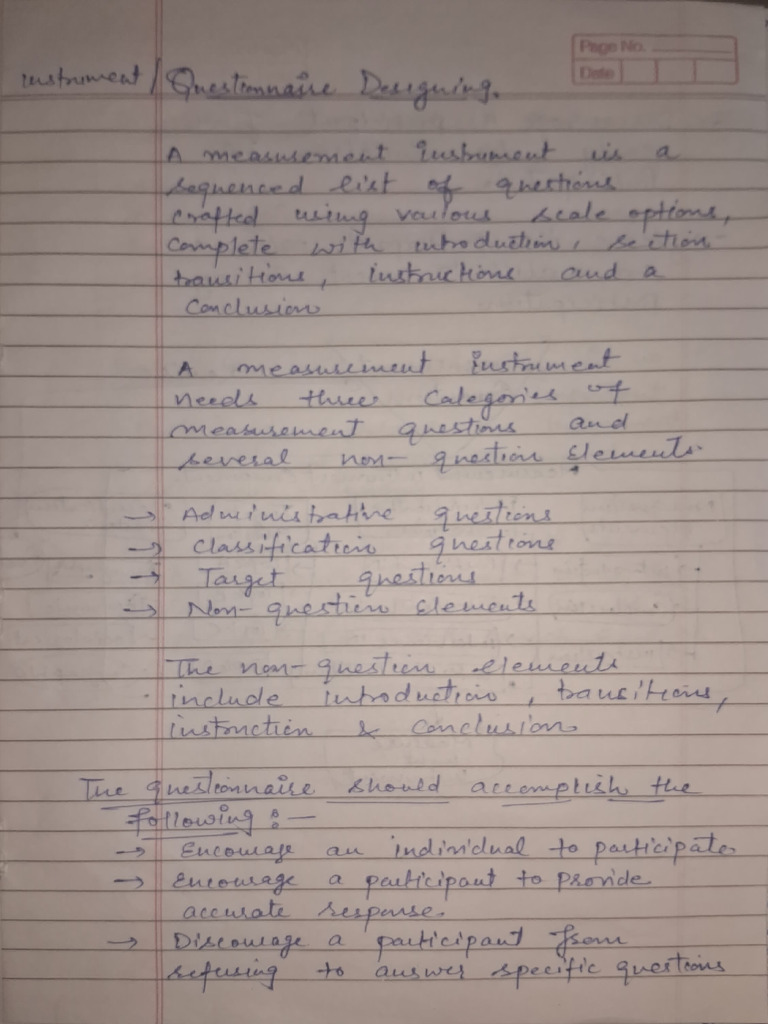 Page No.
Date
instrument / Questionnaire Designing.
A measurement instrument is a
sequenced list of questions
crafted using various scale options,
complete with introduction, section
transitions, instructions and a
conclusion
A measurement instrument
needs three categories of
measurement questions and
several non-question elements.
→ Administrative questions
→ Classification questions
→ Target questions
→ Non-question elements
The non-question elements
include introduction, transitions,
instruction & conclusion
The questionnaire should accomplish the
following :-
→ Encourage an individual to participate
→ Encourage a participant to provide
accurate response.
→ Discourage a participant from
refusing to answer specific questions